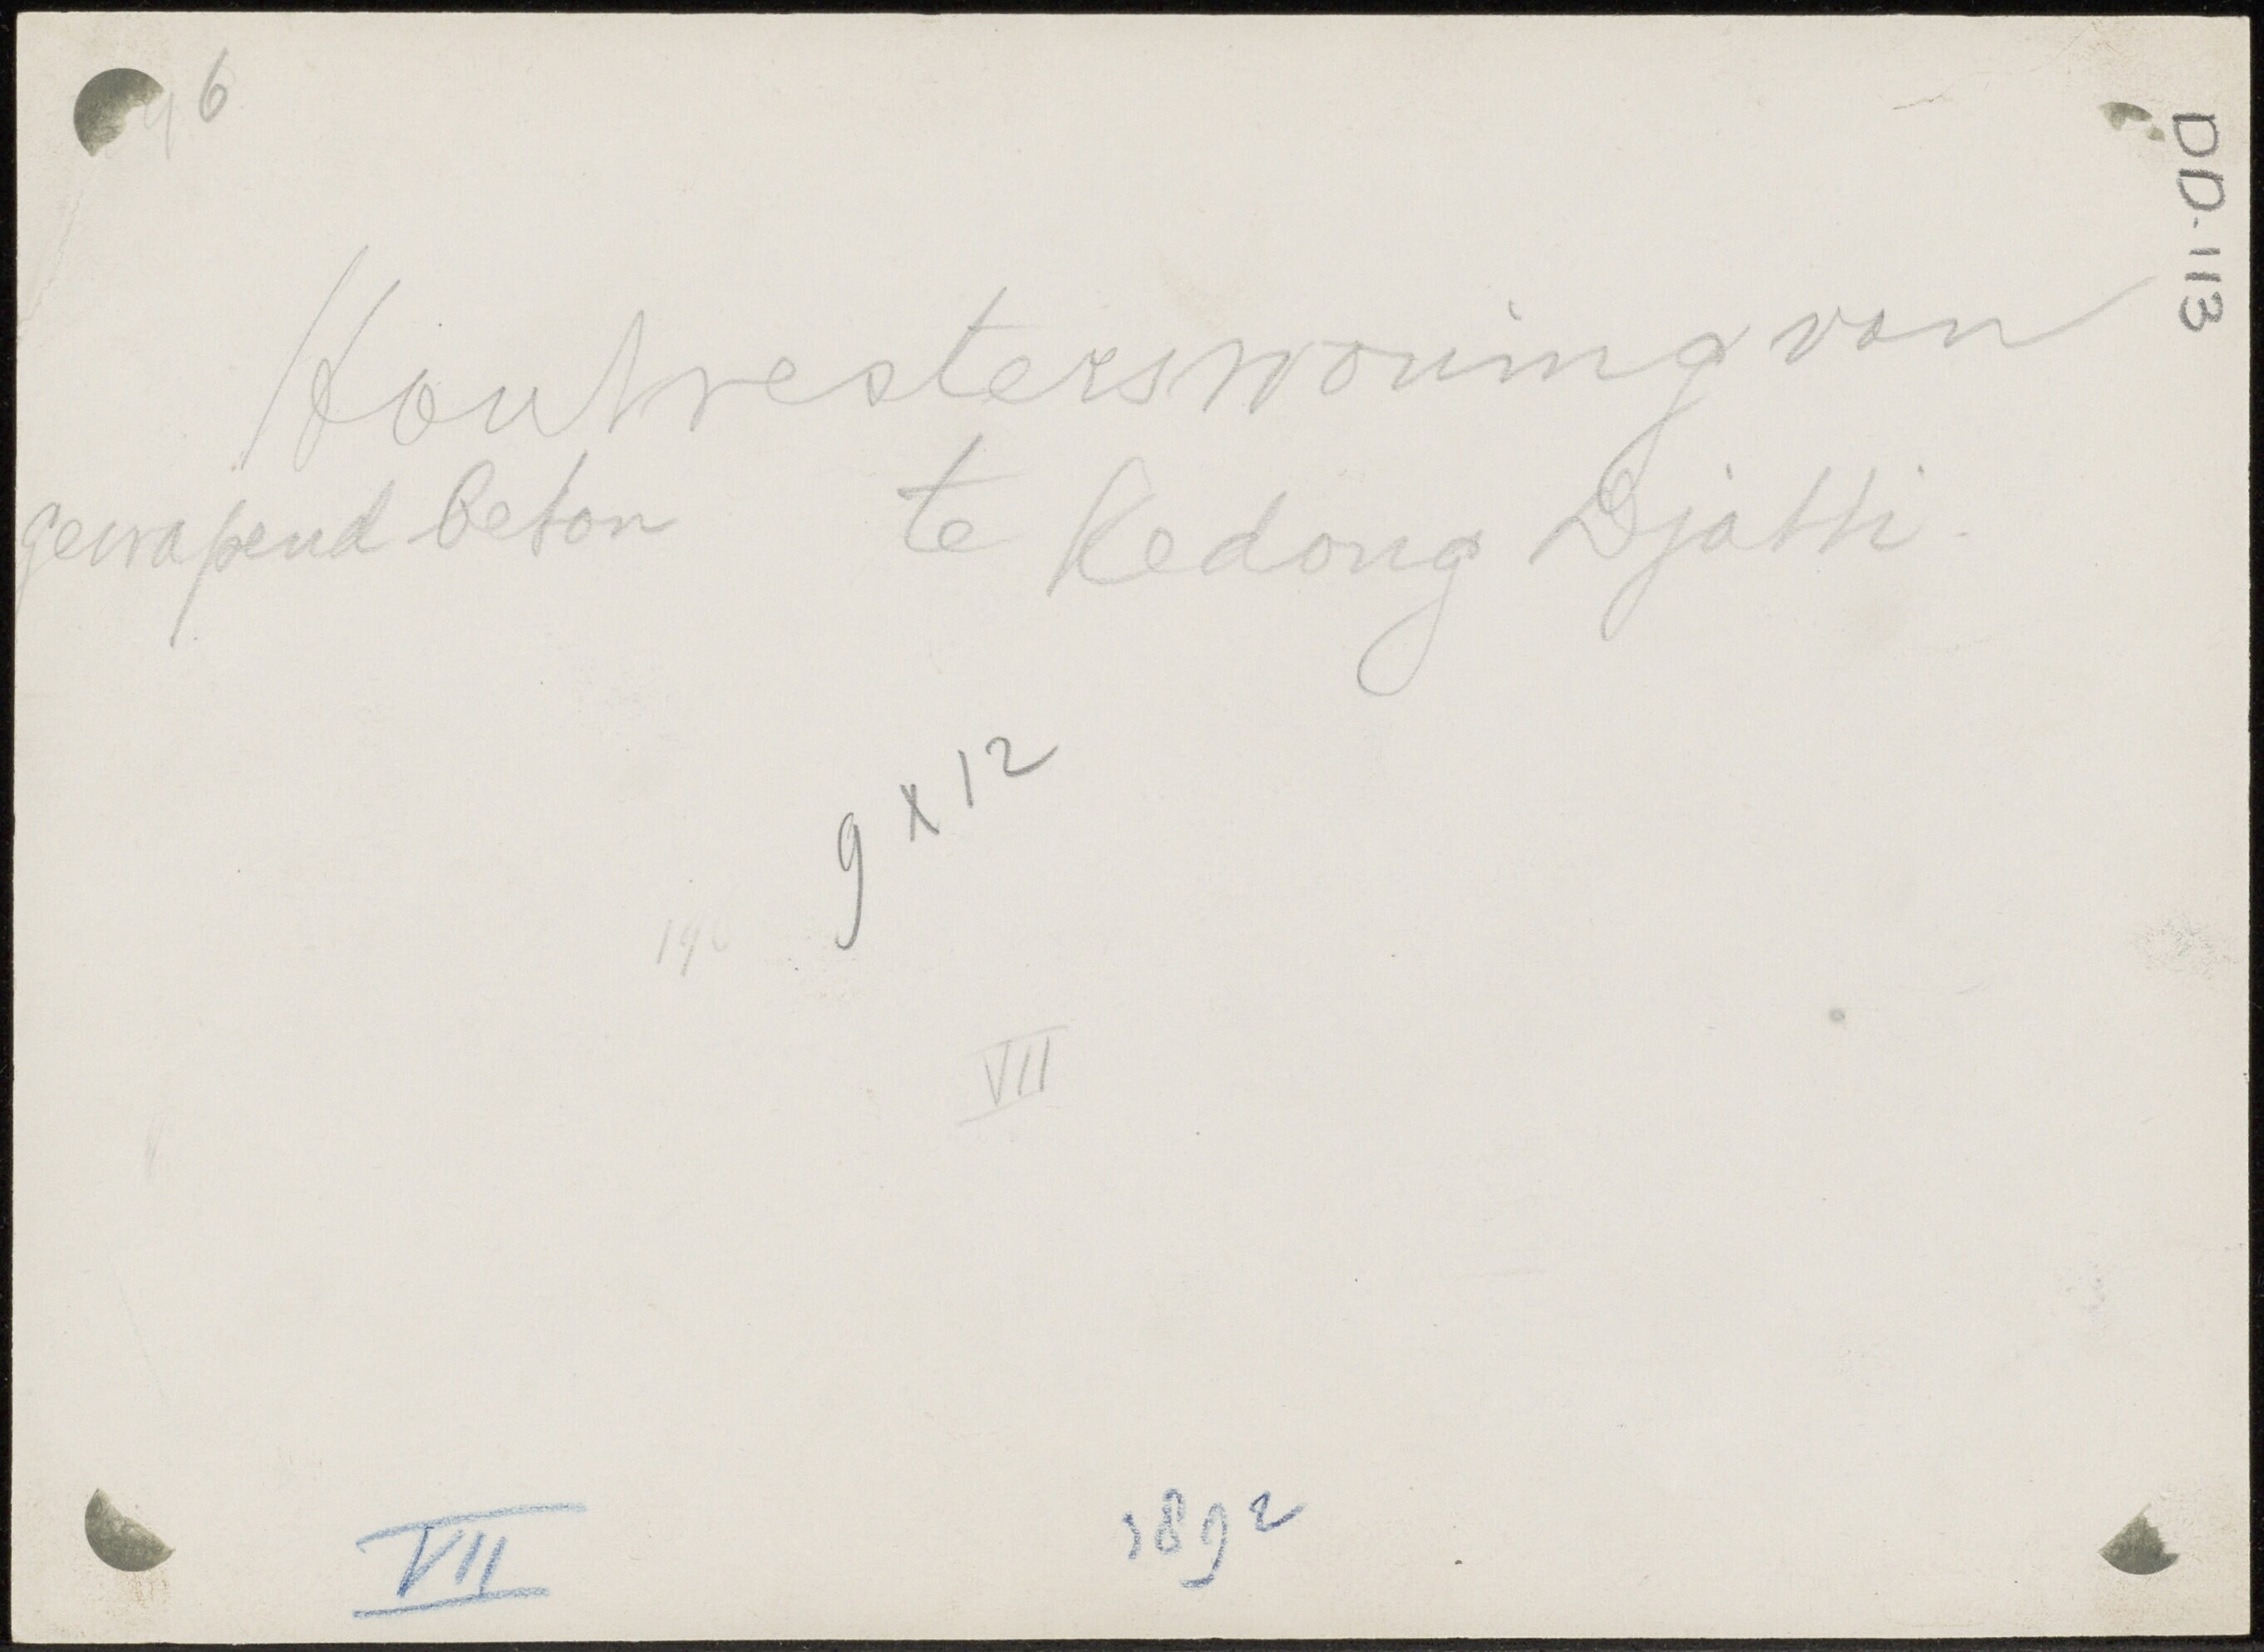 6
DD-113
Houtvesterswoning van
gewapend beton te Kedong Djatti.
9 x 12
VII
VII
1892